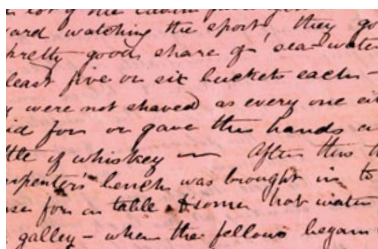 ward watching the sport they go
pretty good share of sea-wate
least five or six buckets each-
y were not shaved as every one ei
id for or gave the hands a
ttle of whiskey — After this t
rpenter's bench was brought in to
se for a table & some hot water
galley - when the fellows began